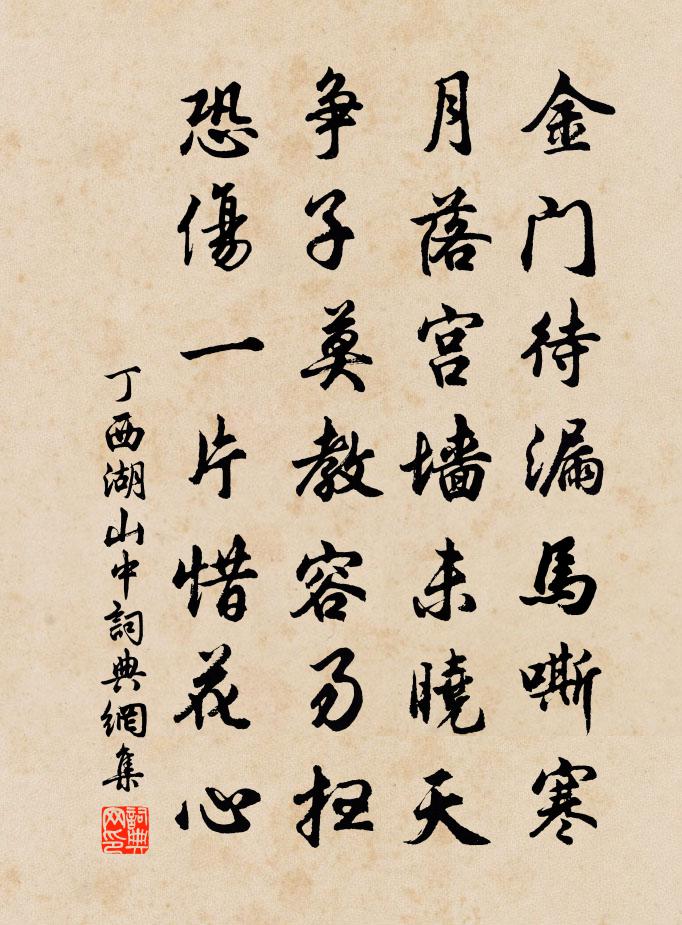 金门待漏馬嘶寒
月落宫墙未曉天
争子莫教容易扫
恐傷一片惜花心
丁酉湖山中詞典網集
詞典网印